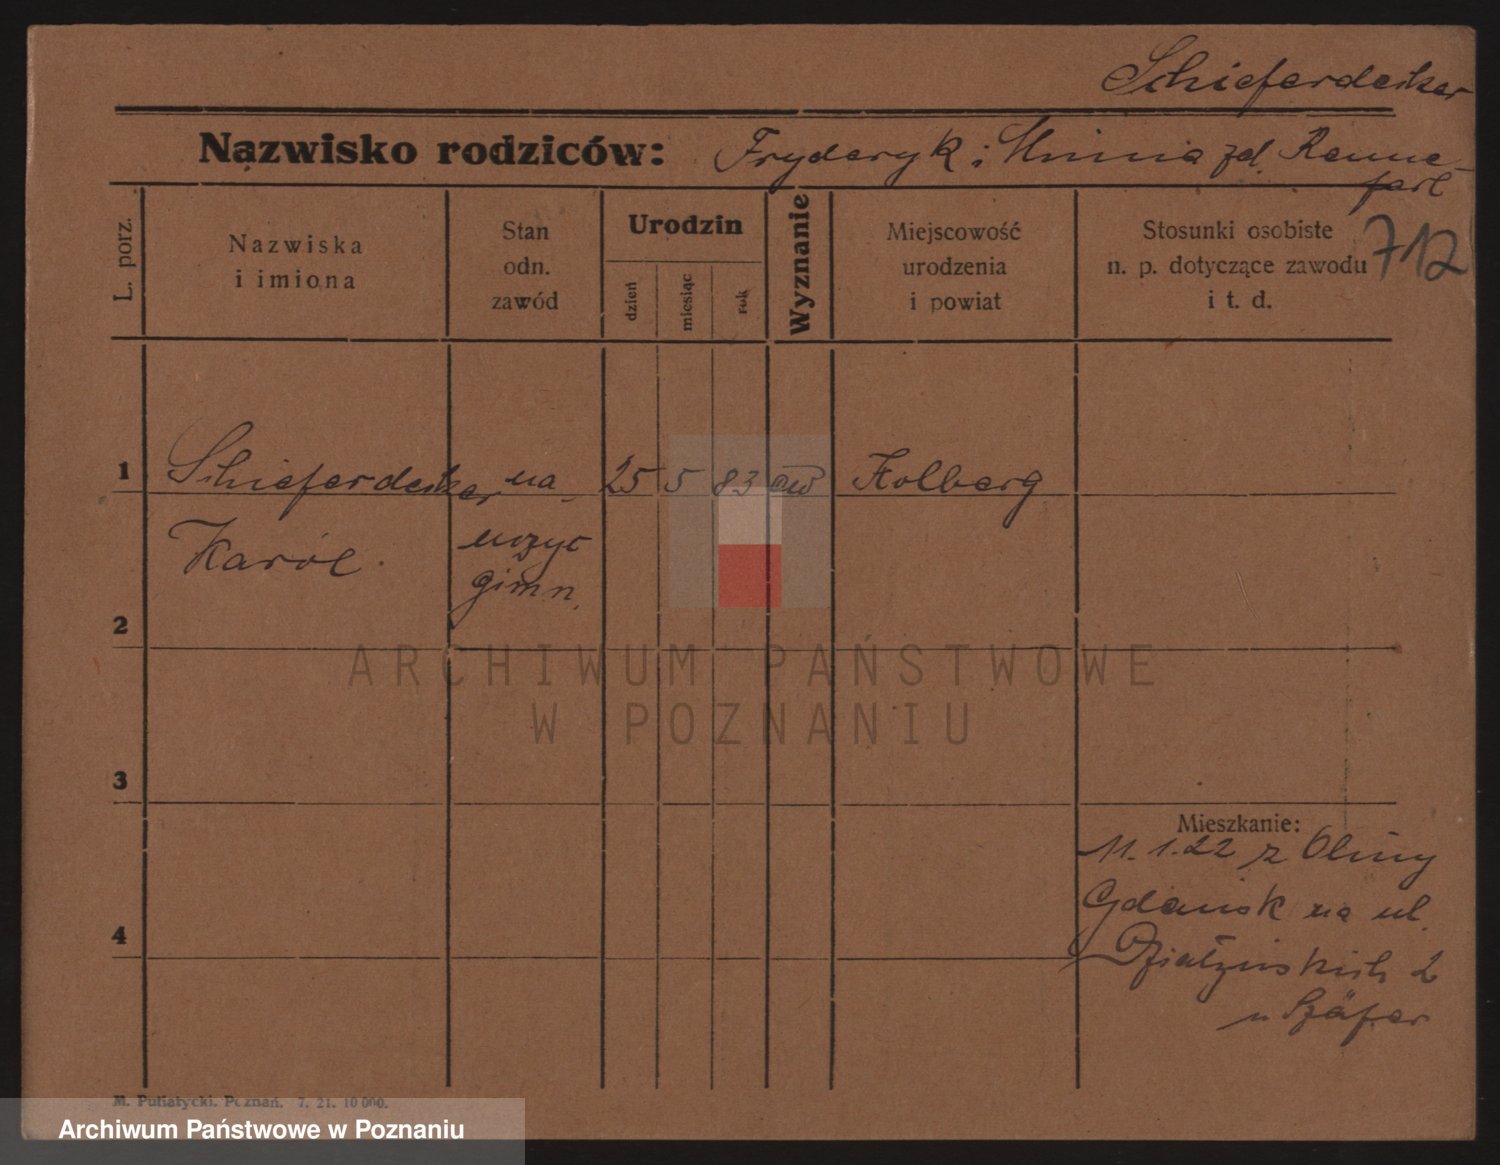 Schieferdecker
Nazwisko rodziców: Fryderyk i Minna zd. Renne-
farl
712
L. porz.
Nazwiska
i imiona
Stan
odn.
zawód
Urodzin
dzień
miesiąc
rok
Wyznanie
Miejscowość
urodzenia
i powiat
Stosunki osobiste
n. p. dotyczące zawodu
i t. d.
1 Schieferdecker na- 25 5 83 ew Kolberg
Karól uczyc
gimn.
2
3
Mieszkanie:
11.1.22 z Oliwy
Gdańsk na ul.
4
Działyńskich 2
u Szäfer
ARCHIWUM PAŃSTWOWE
W POZNANIU
M. Putiatycki. Poznań. 7. 21. 10 000.
Archiwum Państwowe w Poznaniu